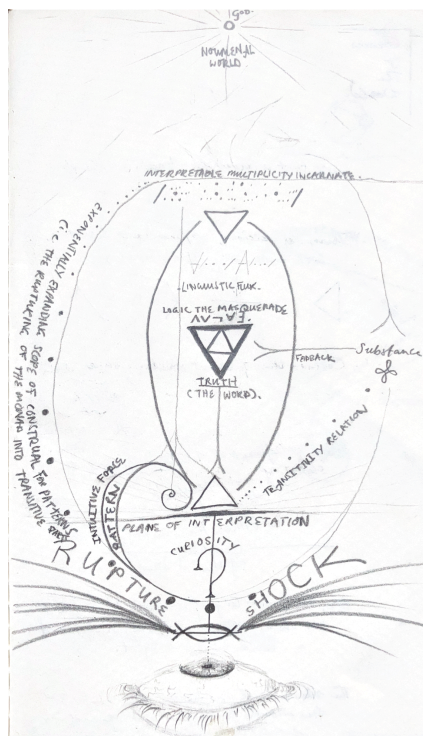 GOD.
NOUMENAL
WORLD
INTERPRETABLE MULTIPLICITY INCARNATE.
EXPONENTIALLY EXPANDING SCOPE OF CONSTRUAL FOR PATTERNS
(i.e. THE RUPTURING OF THE MONAD INTO TRANSITIVE
LINGUISTIC FLUX.
LOGIC THE MASQUERADE
FADBACK
Substance
TRUTH
(THE WORD).
TRANSITIVITY RELATION
INTUITIVE FORCE
PATTERN
PLANE OF INTERPRETATION
CURIOSITY
RUPTURE
SHOCK